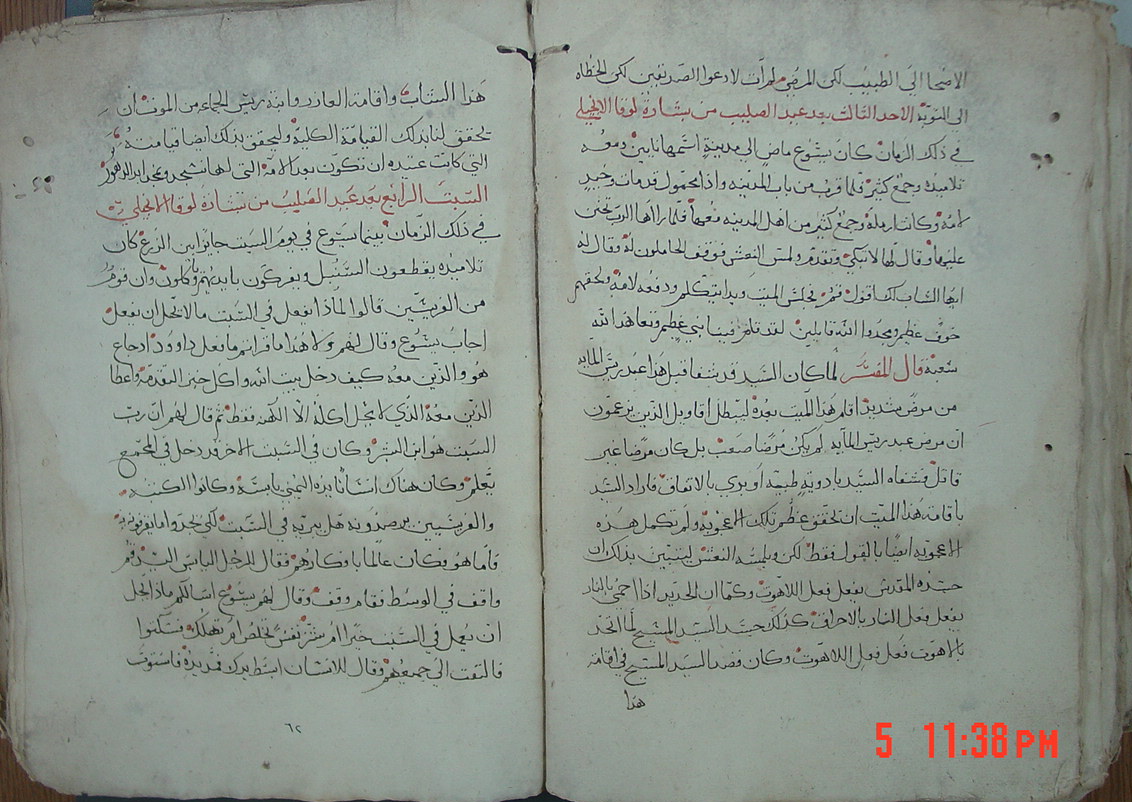 الاصحا الى الطبيب لكن المرضى لم آت لادعوا الصديقين لكن الخطاه
الى التوبة الاحد الثالث بعد عيد الصليب من بشارة لوقا الانجيلي
في ذلك الزمان كان يسوع ماضٍ الى مدينةٍ اسمها نايين ومعه
تلاميذه وجمع كثير فلما قرب من باب المدينه واذا محمول قد مات وحيد
لامه وكانت ارمله وجمع كثير من اهل المدينه معها فلما راها الرب تحنن
عليها وقال لها لا تبكي وتقدم ولمس النعش فوقف الحاملون له وقال له
ايها الشاب لك اقول قم فجلس الميت وبدا يتكلم ودفعه لامه ولحقهم
خوف عظيم ومجدوا الله قايلين لقد قام فينا نبي عظيم وتعاهد الله
شعبه قال المفسر لما كان السيد قد شفا قبل هذا عبد ريس المايه
من مرض شديد اقام هذا الميت بعده ليبطل اقاويل الذين يزعمون
ان مرض عبد ريس المايه لم يكن مرضا صعب بل كان مرضا غير
قاتل فشفاه السيد بادوية طبيه او بري بالاتفاق فاراد السيد
باقامة هذا الميت ان يحقق عظم تلك الاعجوبه ولم تكمل هذه
الاعجوبه ايضا بالقول فقط لكن وبلمسه النعش ليتبين بذلك ان
جسده المقدس يفعل فعل اللاهوت وكما ان الحديد اذا احمي بالنار
يفعل فعل النار بالاحراق كذلك جسد السيد المسيح لما اتحد
بالاهوت فعل فعل اللاهوت وكان قصد السيد المسيح في اقامة
هذا
هذا الشاب واقامة العازر وابنة ريس الجماعه من الموت ان
يحقق لنا بذلك القيامة الكلية وليحقق بذلك ايضا قيامته
التي كانت عتيده ان تكون بعد الامه التي لها نسجد ونمجد ابد الدهور
السبت الرابع بعد عيد الصليب من بشارة لوقا الانجيلي
في ذلك الزمان بينما يسوع في يوم السبت جايزا بين الزرع كان
تلاميذه يقطعون السنبل ويفركون بايديهم وياكلون وان قوم
من الفريسيين قالوا لماذا تفعل في السبت ما لا يحل ان يفعل
اجاب يسوع وقال لهم ولا هذا ما قراتم ما فعل داوود اذ جاع
هو والذين معه كيف دخل بيت الله واكل خبز التقدمة واعطا
الذين معه الذي لا يحل اكله الا الكهنه فقط ثم قال لهم ان رب
السبت هو ابن البشر وكان في السبت الاخر قد دخل في المجمع
يعلم وكان هناك انسانا يده اليمنى يابسة وكانوا الكتبه
والفريسيين يرصدونه هل يبريه في السبت لكي يجدوا ما يقرفونه به
فاما هو فكان عالما بافكارهم فقال للرجل اليابس اليد قم
واقف في الوسط فقام وقف وقال لهم يسوع اسالكم ماذا يحل
ان يعمل في السبت خيرا ام شر نفس تخلص ام تهلك فسكتوا
فالتفت الى جميعهم وقال للانسان ابسط يدك فمد يده فاستوت
٦٢
5 11:38 PM